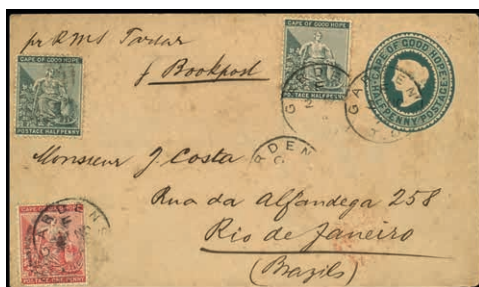 pr RMS Tartar
CAPE OF GOOD HOPE
POSTAGE HALFPENNY
CAPE OF GOOD HOPE
POSTAGE HALFPENNY
CAPE OF GOOD HOPE
HALFPENNY POSTAGE
p Bookpost
GARDENS
Monsieur J. Costa
Rua da Alfandega 258
Rio de Janeiro
(Brazils)
GARDENS
POSTAGE ONE PENNY